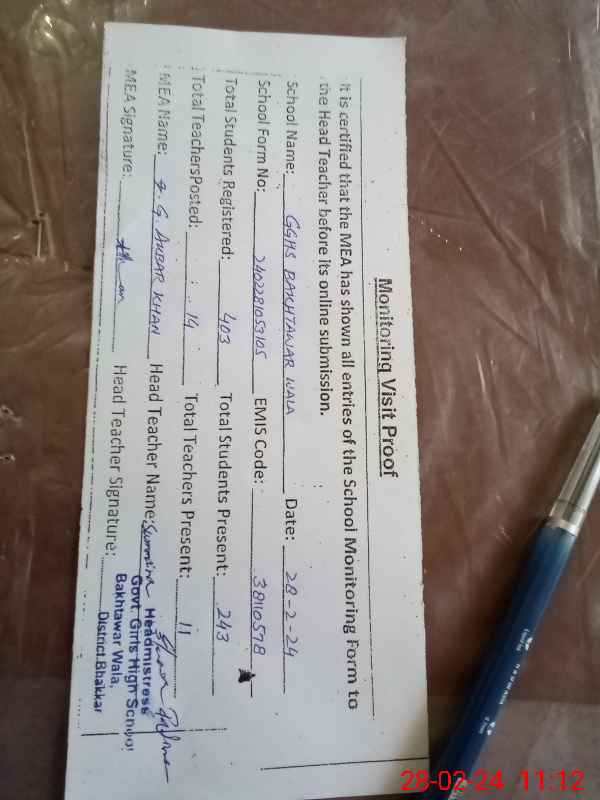 Monitoring Visit Proof
It is certified that the MEA has shown all entries of the School Monitoring Form to
the Head Teacher before its online submission.
School Name: GGHS BAKHTAWAR WALA Date: 28-2-24
School Form No: 2402281053105 EMIS Code: 38110578
Total Students Registered: 403 Total Students Present: 243
Total TeachersPosted: 14 Total Teachers Present: 11
MEA Name: G. AKBAR KHAN Head Teacher Name:
MEA Signature: Head Teacher Signature:
Headmistress
Govt. Girls High School
Bakhtawar Wala,
District.Bhakkar
28-02-24 11:12